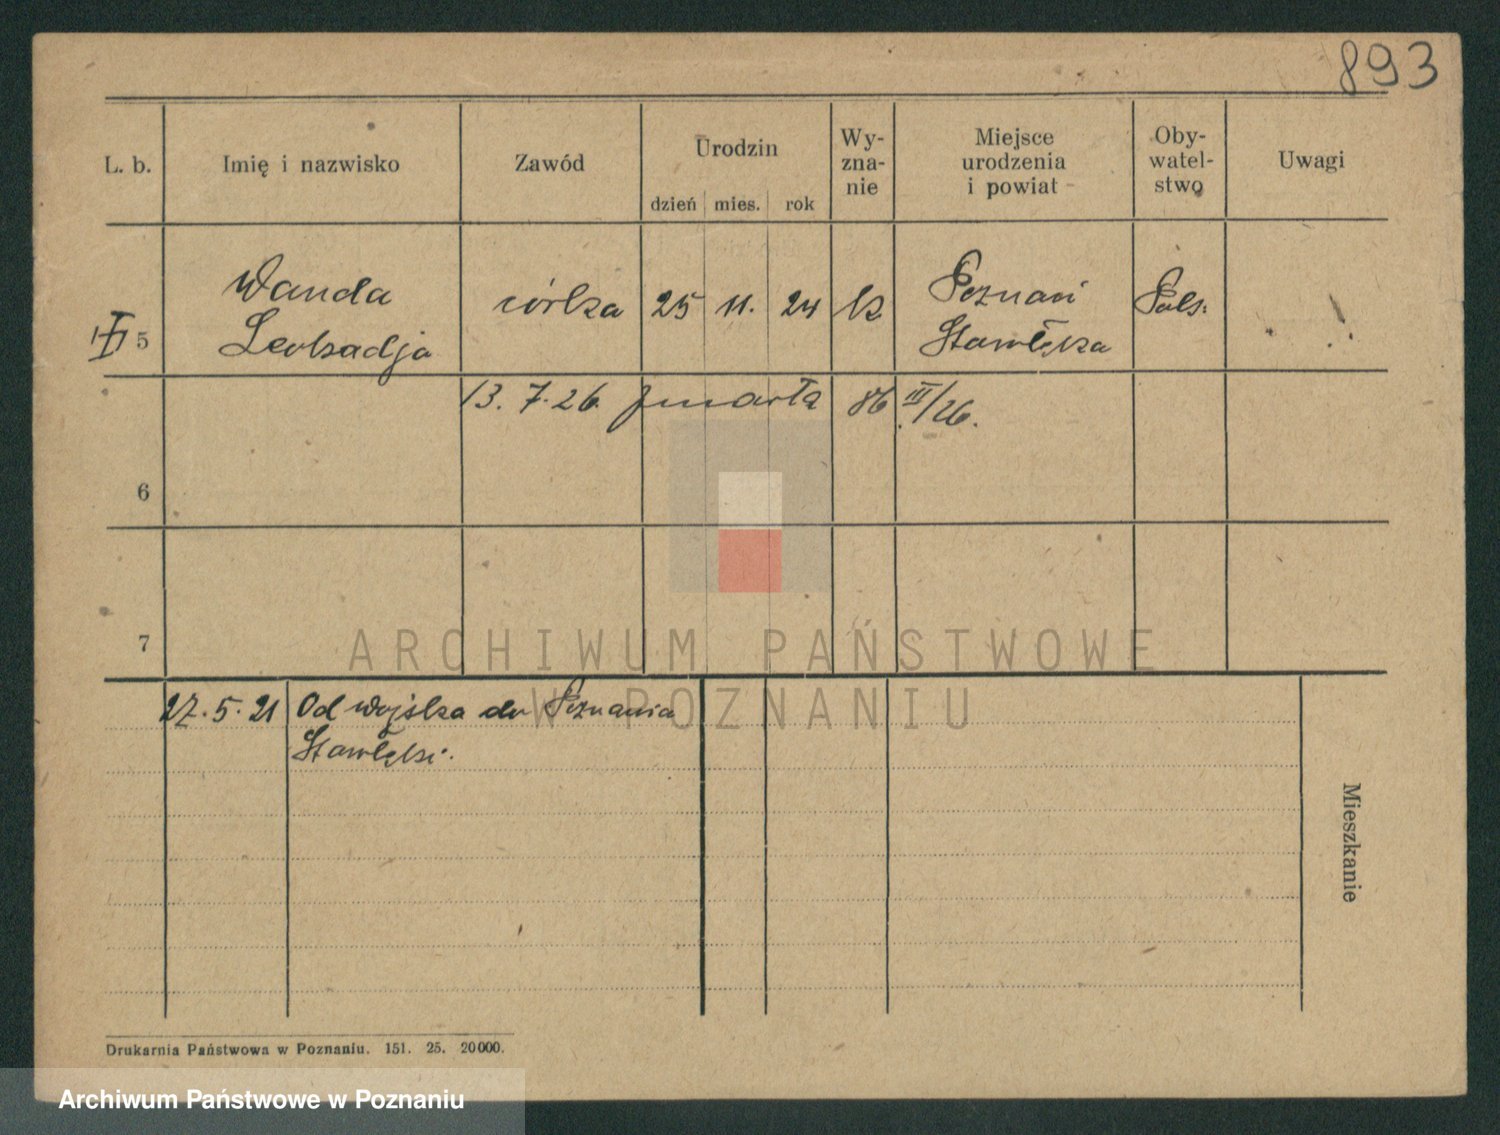 893
L. b.
Imię i nazwisko
Zawód
Urodzin
dzień mies. rok
Wy-
zna-
nie
Miejsce
urodzenia
i powiat
Oby-
watel-
stwo
Uwagi
5
Wanda
Leokadja
córka
25
11.
24
k
Poznań
Starołęka
Pols.
13. 7. 26. zmarła 86 III/26.
6
7
ARCHIWUM PAŃSTWOWE
W POZNANIU
27. 5. 21 Od wojska do Poznania
Starołęki.
Mieszkanie
Drukarnia Państwowa w Poznaniu. 151. 25. 20000.
Archiwum Państwowe w Poznaniu